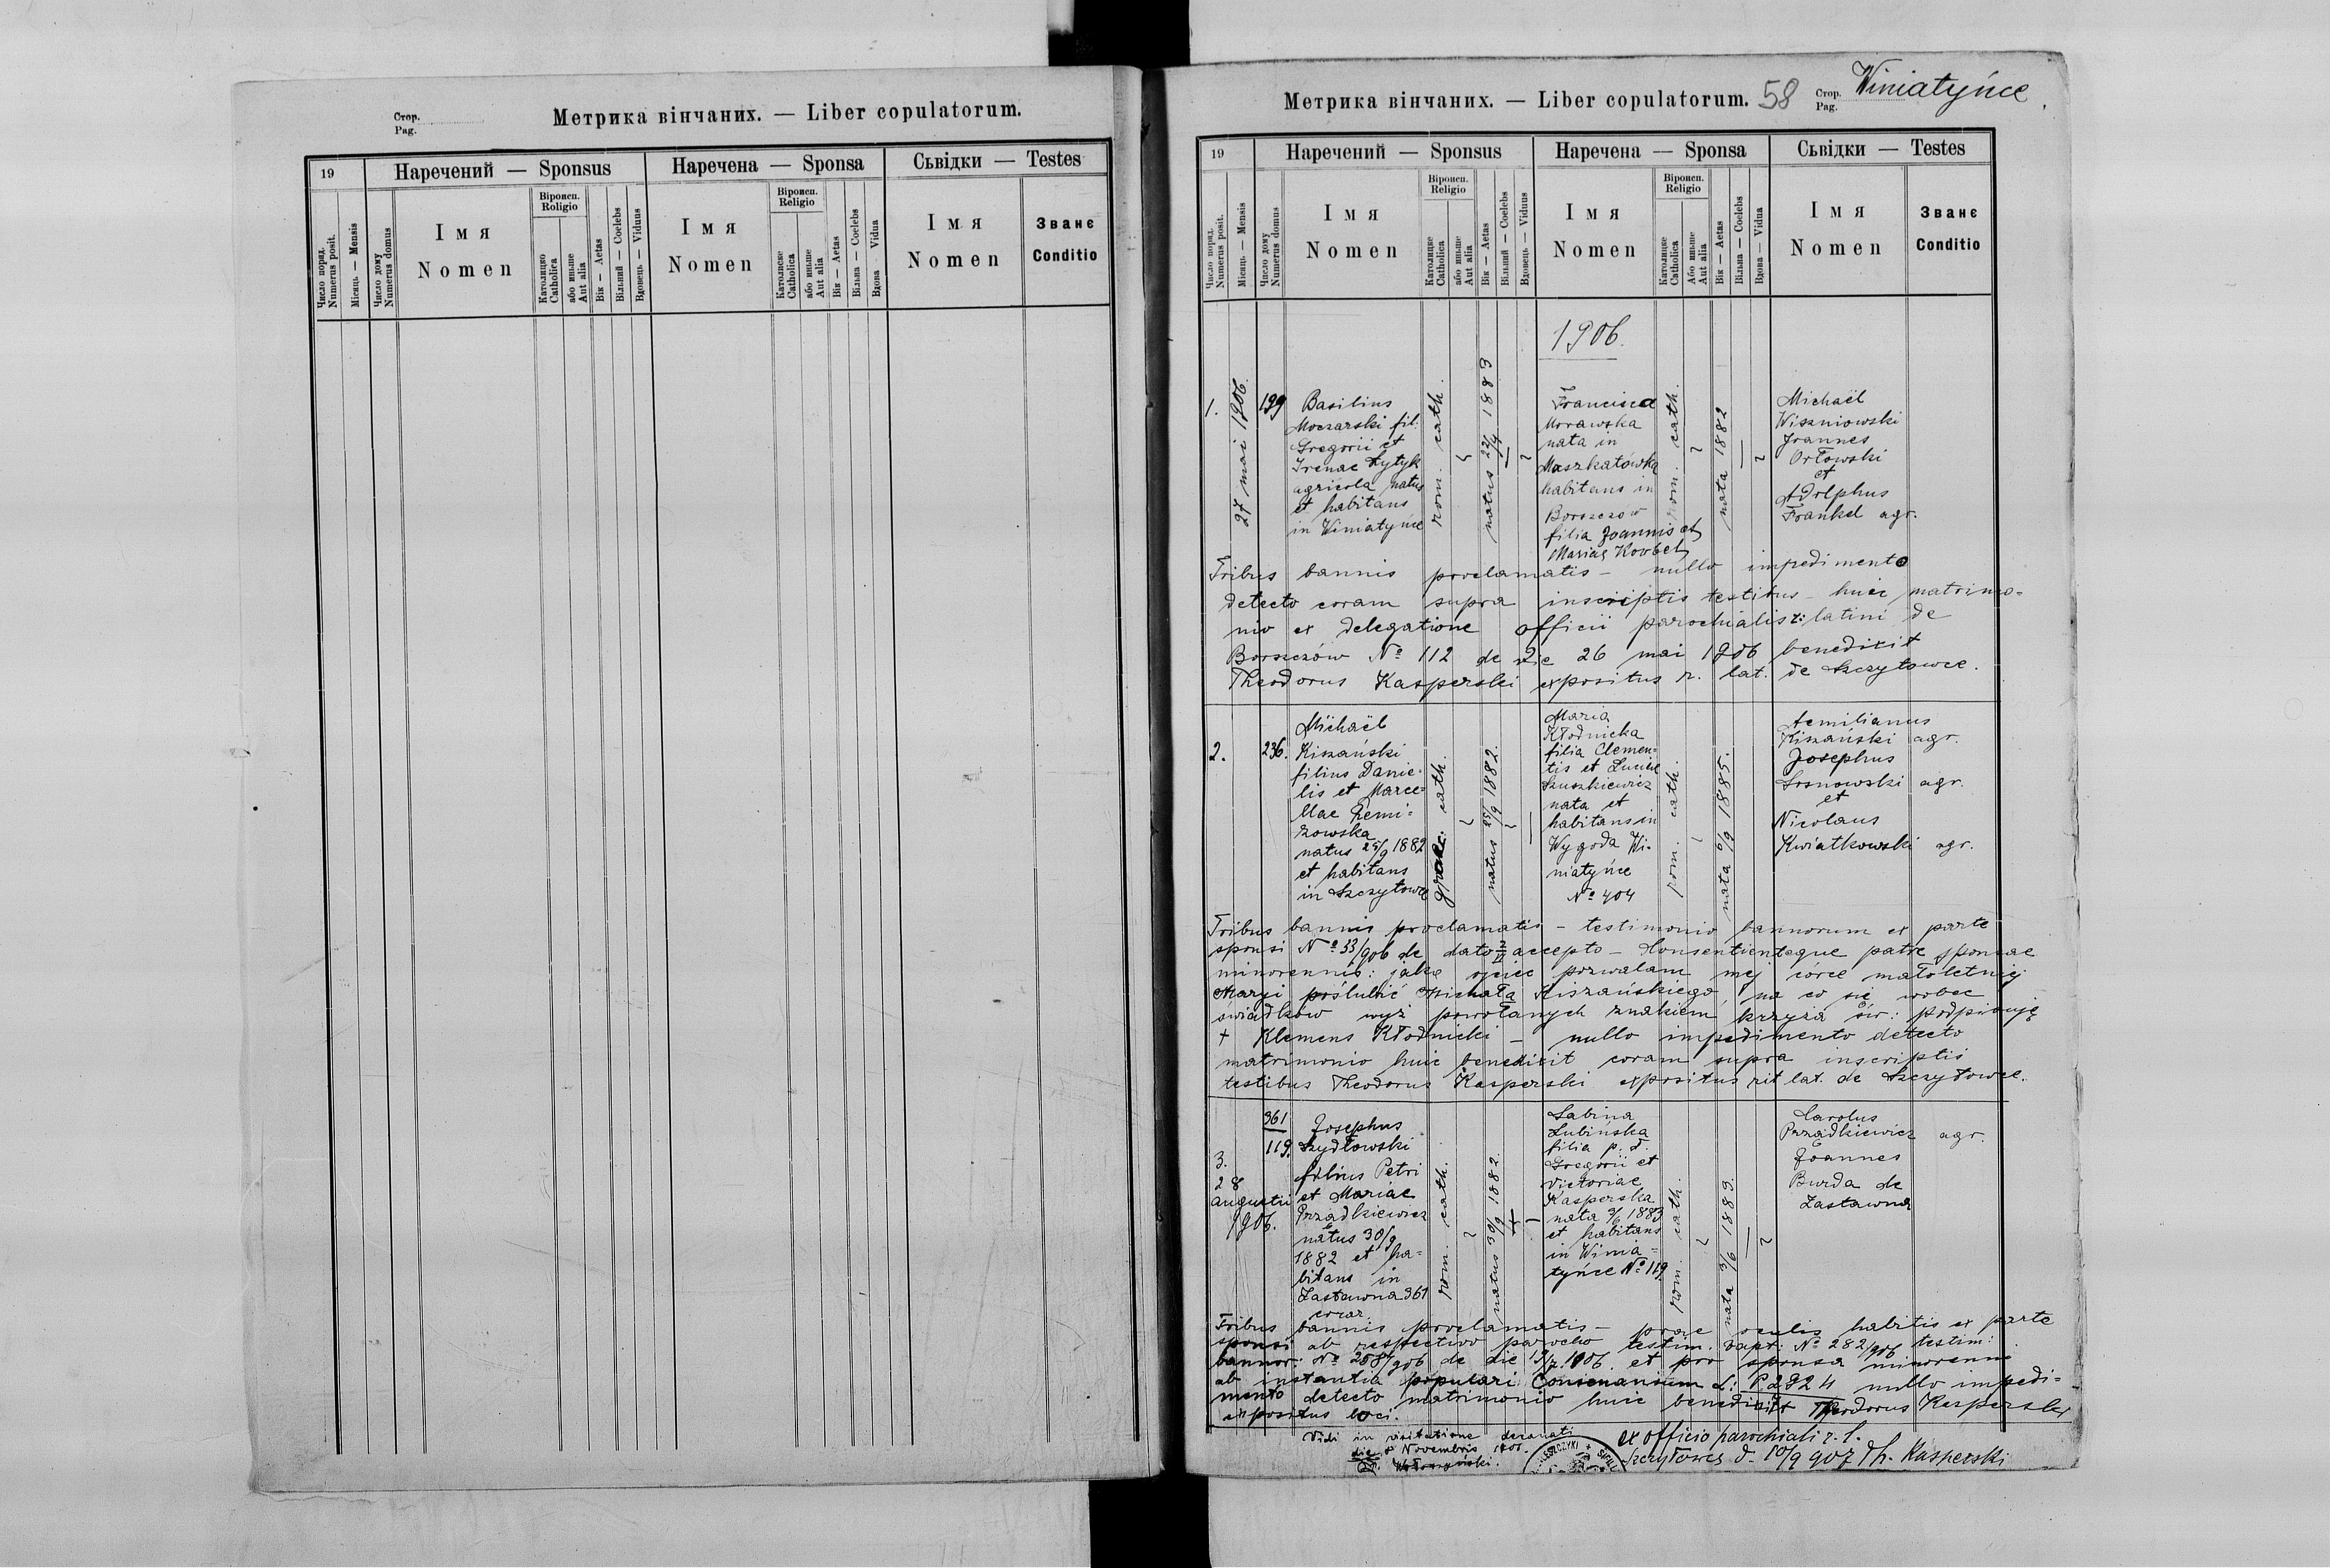 Стор.
Pag.
Метрика вінчаних. — Liber copulatorum.
19
Наречений — Sponsus
Наречена — Sponsa
Сьвідки — Testes
Число поряд.
Numerus posit.
Місяць — Mensis
Число дому
Numerus domus
Імя
Nomen
Віроисп.
Roligio
Католицко
Catholica
або иньше
Aut alia
Вік — Aetas
Вільний — Coelebs
Вдовець — Viduus
Імя
Nomen
Віроисп.
Religio
Католицке
Catholica
або иньше
Aut alia
Вік — Aetas
Вільна — Coelebs
Вдова Vidua
Імя
Nomen
Званє
Conditio
Метрика вінчаних. — Liber copulatorum.
58
Стор.
Pag.
Winiatyńce
19
Наречений — Sponsus
Наречена — Sponsa
Сьвідки — Testes
Число поряд.
Numerus posit.
Місяць — Mensis
Число дому
Numerus domus
Імя
Nomen
Віроисп.
Religio
Католицке
Catholica
або иньше
Aut alia
Вік — Aetas
Вільний — Coelebs
Вдовець — Viduus
Імя
Nomen
Віроисп.
Religio
Католицке
Catholica
Або иньше
Aut alia
Вік — Aetas
Вільна — Coelebs
Вдова — Vidua
Імя
Nomen
Званє
Conditio
1906.
1.
27 mai 1906.
199
Basilius
Moczarski fil:
Gregorii et
Irenae Łytyk
agricola natus
et habitans
in Winiatyńce
rom. cath.
natus 22/4 1883
Francisca
Morawska
nata in
Muszkatówka
habitans in
Borszczow
filia Joannis et
Mariae Korbet
rom. cath.
nata 1882
Michaël
Wiszniowski
Joannes
Orłowski
et
Adolphus
Frankel agr.
Tribus bannis proclamatis – nullo impedimento
detecto coram supra inscriptis testibus – huic matrimo=
nio ex delegatione officii parochialis r: latini de
Borszczów № 112 de die 26 mai 1906 benedixit
Theodorus Kasperski expositus r. lat. de Szczytowce.
2.
236.
Michaël
Kiszański
filius Danie-
lis et Marce=
llae Remi=
zowska
natus 25/9 1882
et habitans
in Szczytowce
graec. cath.
natus 25/9 1882.
Maria
Kłodnicka
filia Clemen=
tis et Luciae
Szuszkiewicz
nata et
habitans in
Wygoda Wi-
niatyńce
№ 404
rom. cath.
nata 6/9 1885.
Aemilianus
Kiszański agr.
Josephus
Sosnowski agr.
et
Nicolaus
Kwiatkowski agr.
Tribus bannis proclamatis – testimonio bannorum ex parte
sponsi № 33/906 de dato accepto – Consentienteque patre sponsae
minorennis: jako ojciec pozwalam mej córce małoletniej
Maryi poślubić Michała Kiszańskiego, na co się wobec
świadków wyż powołanych znakiem krzyża św: podpisuję
+ Klemens Kłodnicki – nullo impedimento detecto
matrimonio huic benedixit coram supra inscriptis
testibus Theodorus Kasperski expositus rit lat. de Szczytowce.
3.
28
augusti
1906.
361
119.
Josephus
Szydłowski
filius Petri
et Mariae
Prządkiewicz
natus 30/9
1882 et ha=
bitans in
Zastawna 361
rom. cath.
natus 30/9 1882.
Sabina
Lubińska
filia p. d.
Gregorii et
Victoriae
Kasperska
nata 3/6 1883
et habitans
in Winia=
tyńce № 119
rom. cath.
nata 3/6 1883.
Carolus
Prządkiewicz agr.
Joannes
Burda de
Zastawna
Tribus bannis proclamatis – prae oculis habitis ex parte
sponsi ab respectivo parocho testim. bapt. № 282/906 testim:
bannor: № 258/906 de die et pro sponsa minorenni
ab instantia populari L: P 292 4 nullo impedi=
mento detecto matrimonio huic benedixit Theodorus Kasperski
expositus loci.
Vidi in visitatione decanali
die 8 Novembris 1906.
ex officio parochiali r. l.
Szczytowce d. 10/9 907 Th. Kasperski